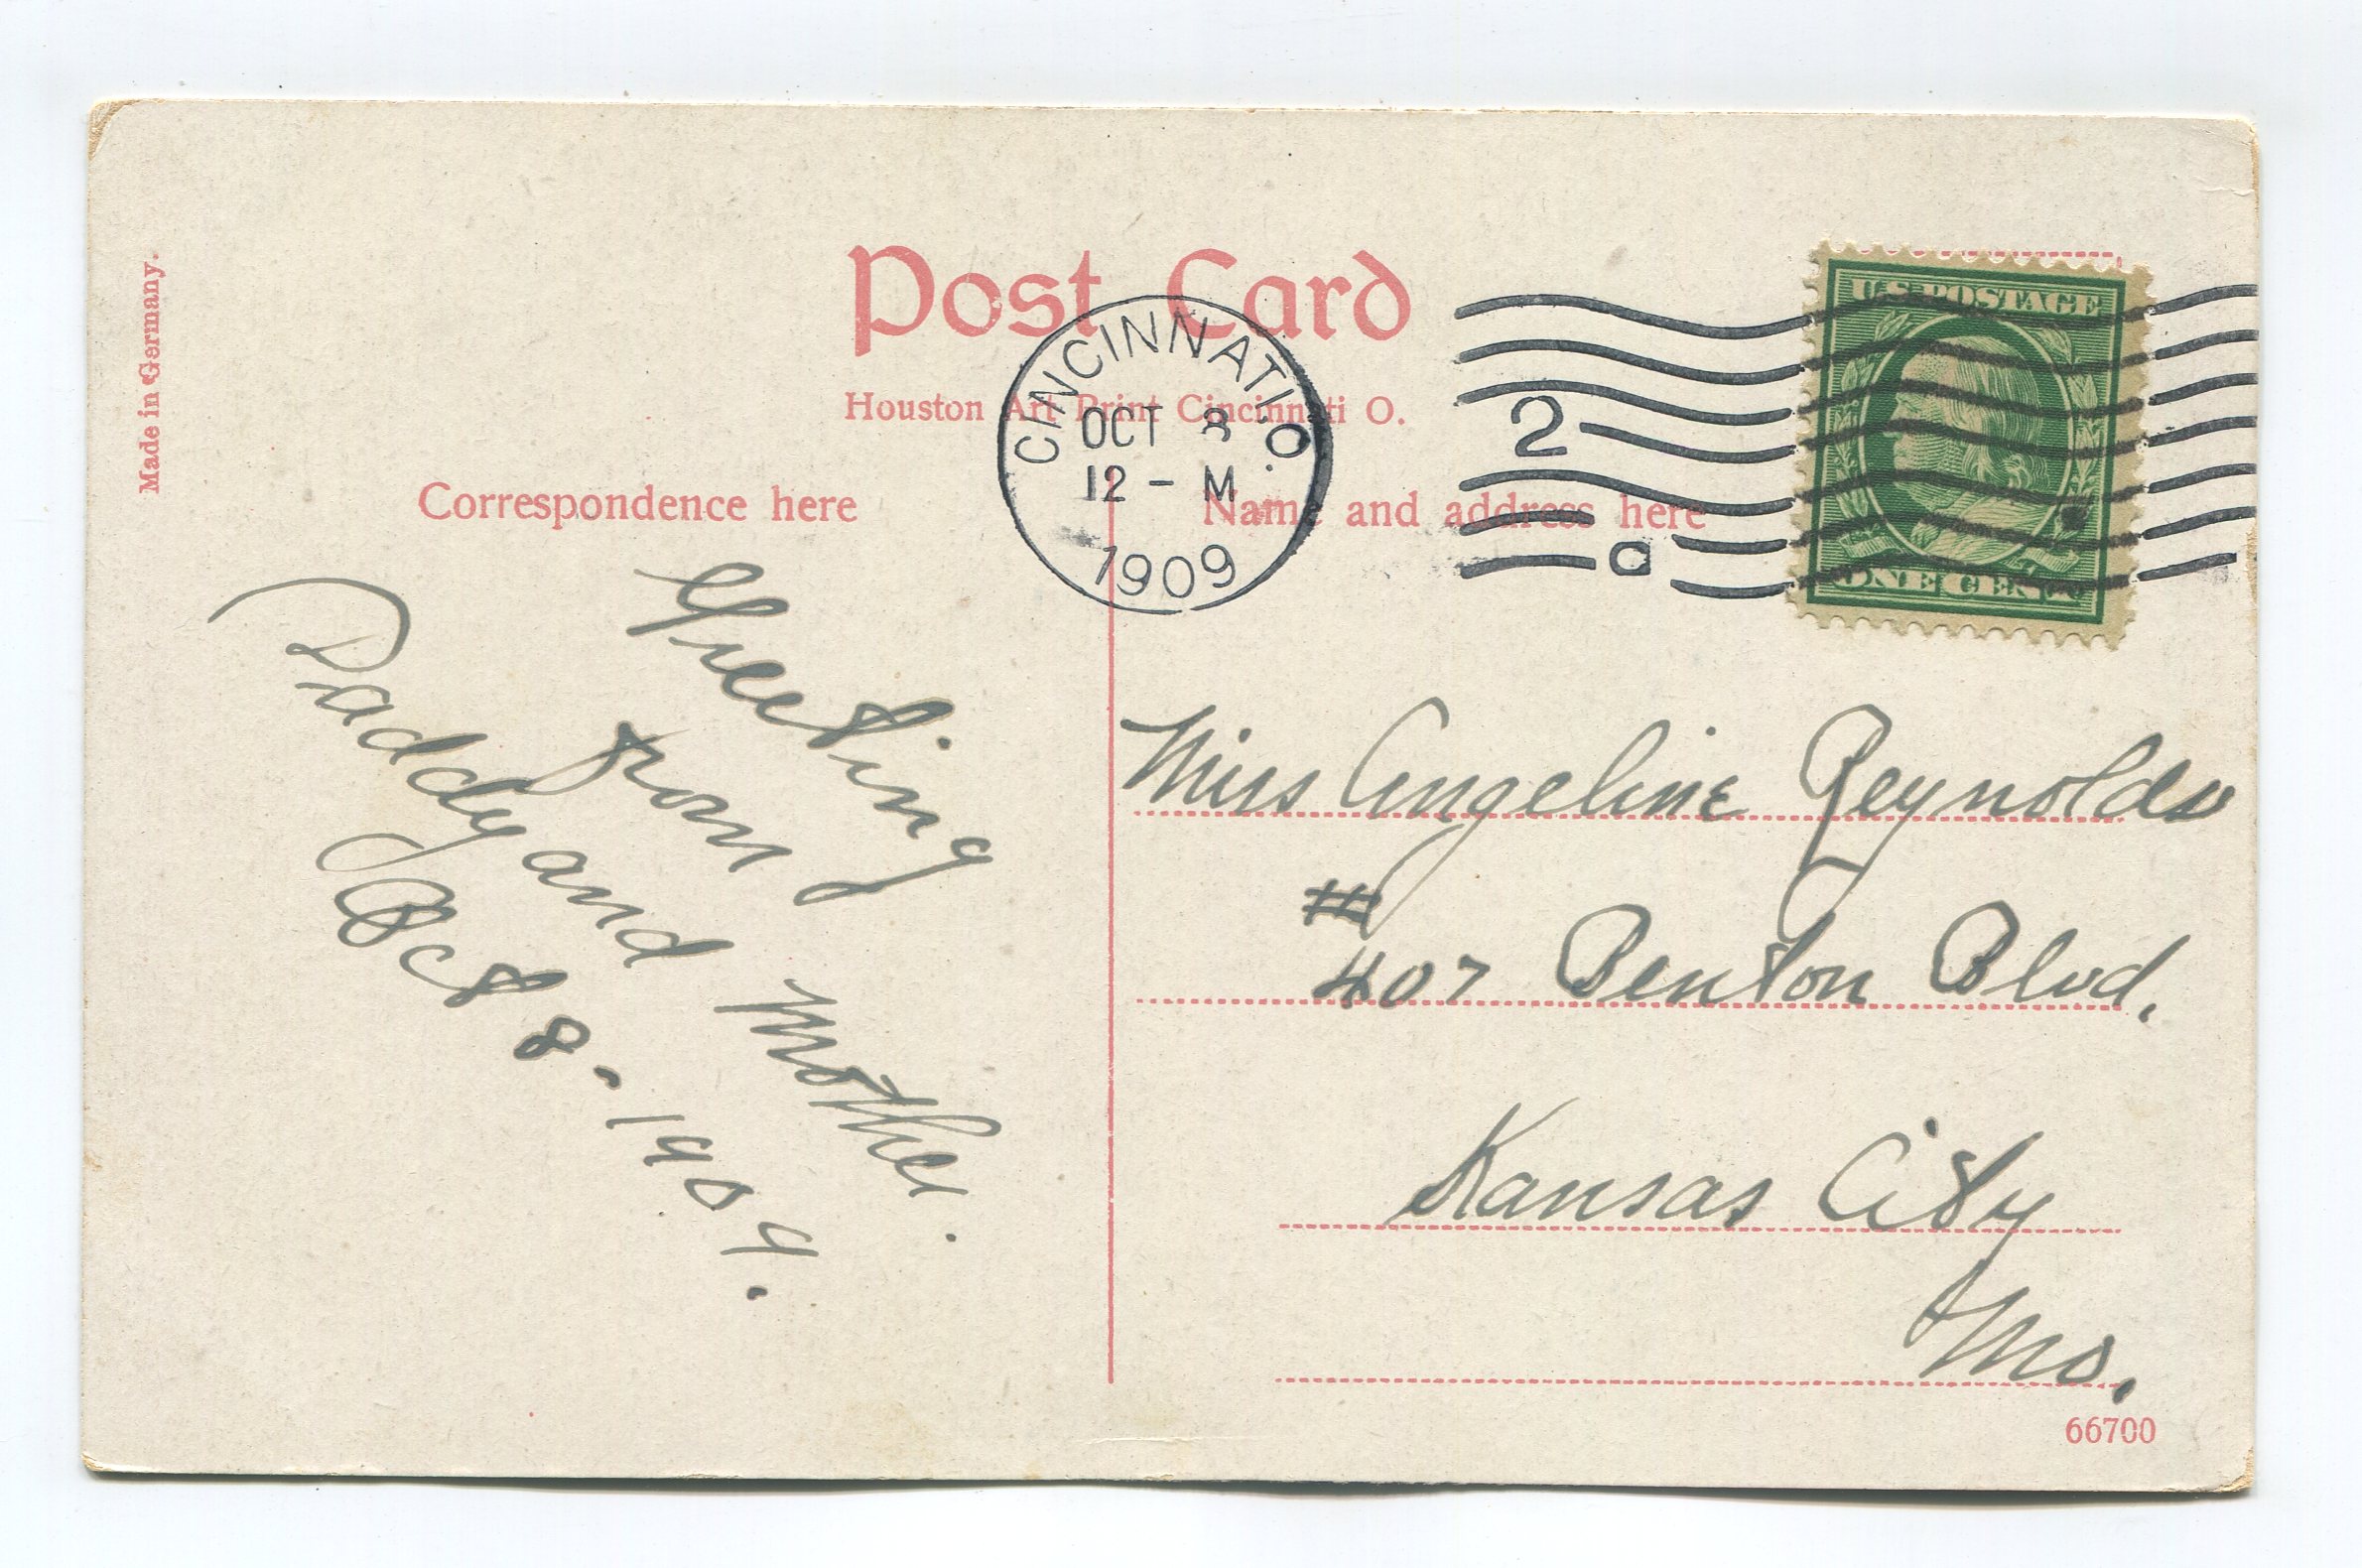 Post Card
Houston Art Print Cincinnati O.
Made in Germany.
CINCINNATI, O.
OCT 8
12 - M
1909
2
a
U.S. POSTAGE
ONE CENT
Correspondence here
Name and address here
Greeting
from
Daddy and Mother.
Oct 8-1909.
Miss Angeline Reynolds
#
407 Benton Blvd.
Kansas City
Mo.
66700